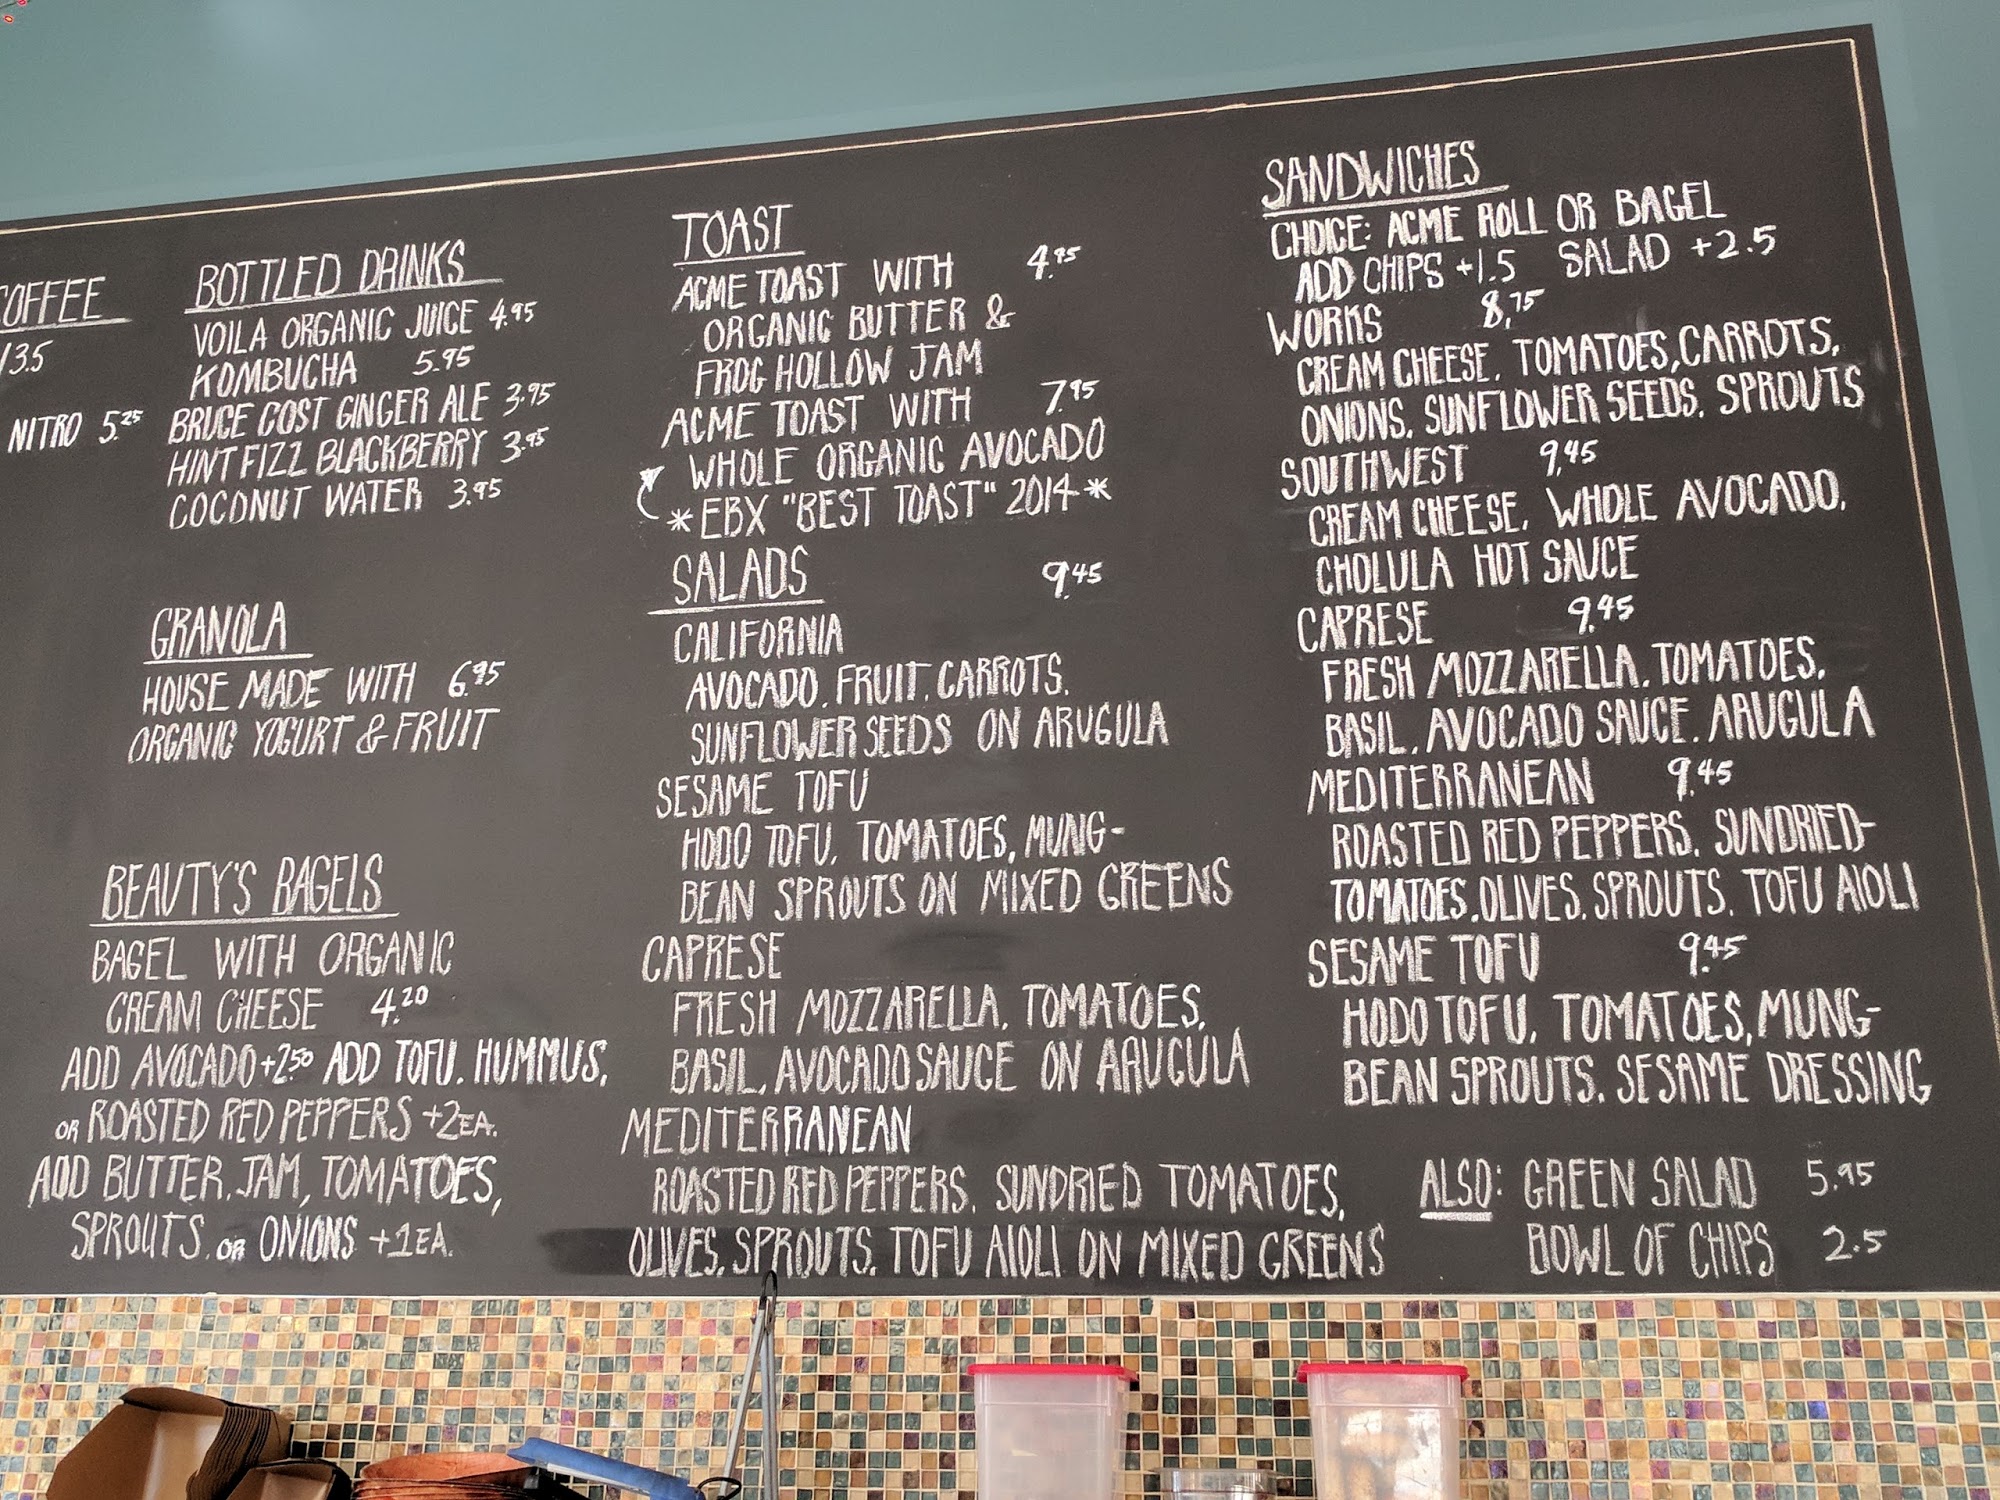 COFFEE
/3.5
NITRO 5.25
BOTTLED DRINKS
VOILA ORGANIC JUICE 4.95
KOMBUCHA 5.95
BRUCE COST GINGER ALE 3.95
HINT FIZZ BLACKBERRY 3.95
COCONUT WATER 3.95
GRANOLA
HOUSE MADE WITH 6.95
ORGANIC YOGURT & FRUIT
BEAUTY'S BAGELS
BAGEL WITH ORGANIC
CREAM CHEESE 4.20
ADD AVOCADO +2.50 ADD TOFU, HUMMUS,
OR ROASTED RED PEPPERS +2EA.
ADD BUTTER, JAM, TOMATOES,
SPROUTS, OR ONIONS +1EA.
TOAST
ACME TOAST WITH 4.95
ORGANIC BUTTER &
FROG HOLLOW JAM
ACME TOAST WITH 7.95
WHOLE ORGANIC AVOCADO
*EBX "BEST TOAST" 2014*
SALADS 9.45
CALIFORNIA
AVOCADO, FRUIT, CARROTS,
SUNFLOWER SEEDS ON ARUGULA
SESAME TOFU
HODO TOFU, TOMATOES, MUNG-
BEAN SPROUTS ON MIXED GREENS
CAPRESE
FRESH MOZZARELLA, TOMATOES,
BASIL, AVOCADO SAUCE ON ARUGULA
MEDITERRANEAN
ROASTED RED PEPPERS, SUNDRIED TOMATOES,
OLIVES, SPROUTS, TOFU AIOLI ON MIXED GREENS
SANDWICHES
CHOICE: ACME ROLL OR BAGEL
ADD CHIPS +1.5 SALAD +2.5
WORKS 8.75
CREAM CHEESE, TOMATOES, CARROTS,
ONIONS, SUNFLOWER SEEDS, SPROUTS
SOUTHWEST 9.45
CREAM CHEESE, WHOLE AVOCADO,
CHOLULA HOT SAUCE
CAPRESE 9.45
FRESH MOZZARELLA, TOMATOES,
BASIL, AVOCADO SAUCE, ARUGULA
MEDITERRANEAN 9.45
ROASTED RED PEPPERS, SUNDRIED-
TOMATOES, OLIVES, SPROUTS, TOFU AIOLI
SESAME TOFU 9.45
HODO TOFU, TOMATOES, MUNG-
BEAN SPROUTS, SESAME DRESSING
ALSO: GREEN SALAD 5.95
BOWL OF CHIPS 2.5